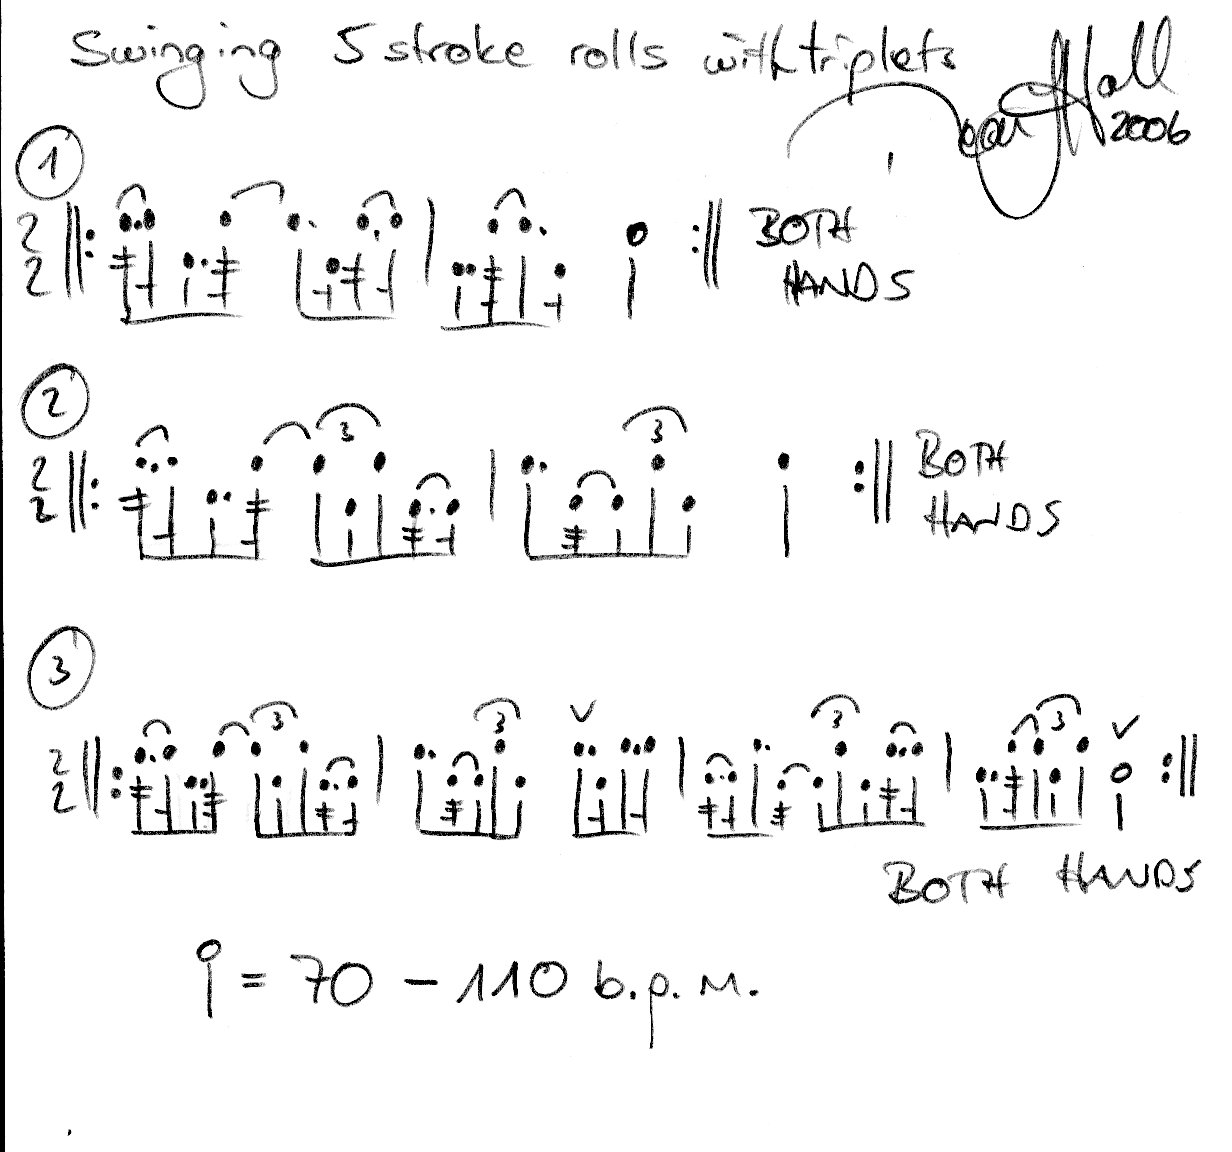 Swinging 5 stroke rolls with triplets
Hall
2006
1
2
2
BOTH
HANDS
2
3
3
2
2
BOTH
HANDS
3
3
3
3
3
2
2
BOTH HANDS
= 70 - 110 b.p.m.